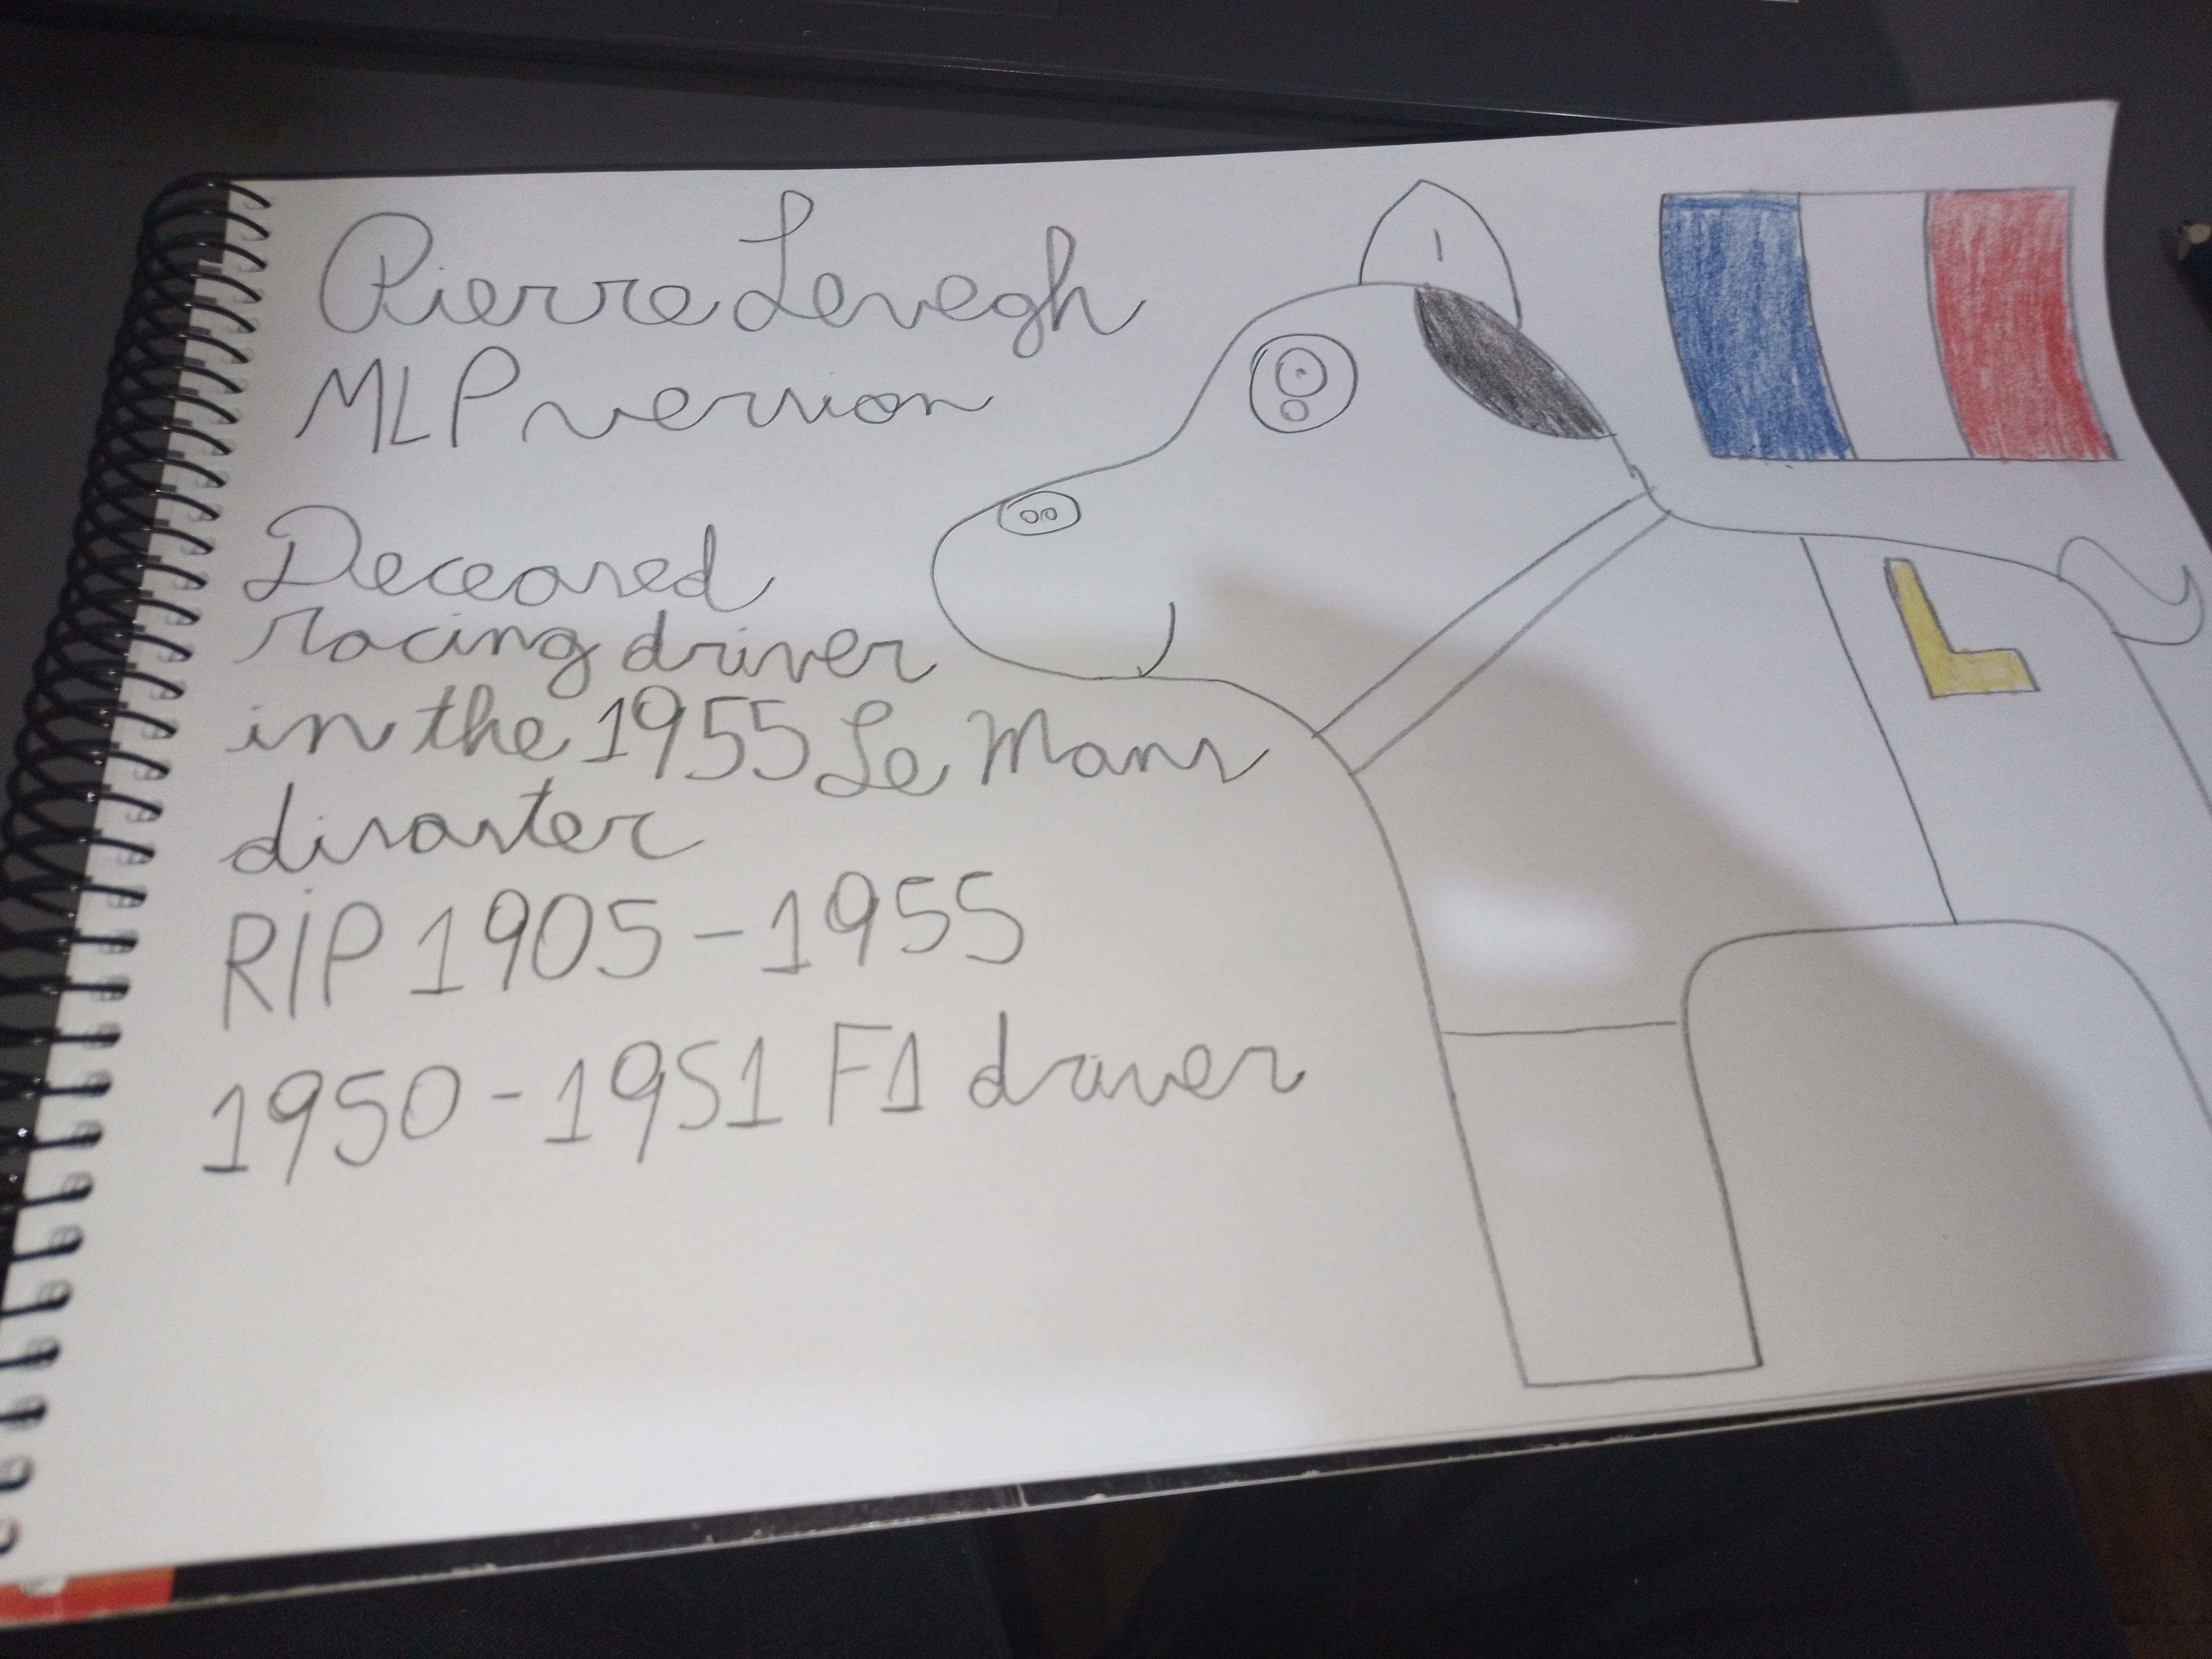 Pierre Levegh
MLP version
Deceased
racing driver
in the 1955 Le Mans
disaster
RIP 1905-1955
1950-1951 F1 driver
L